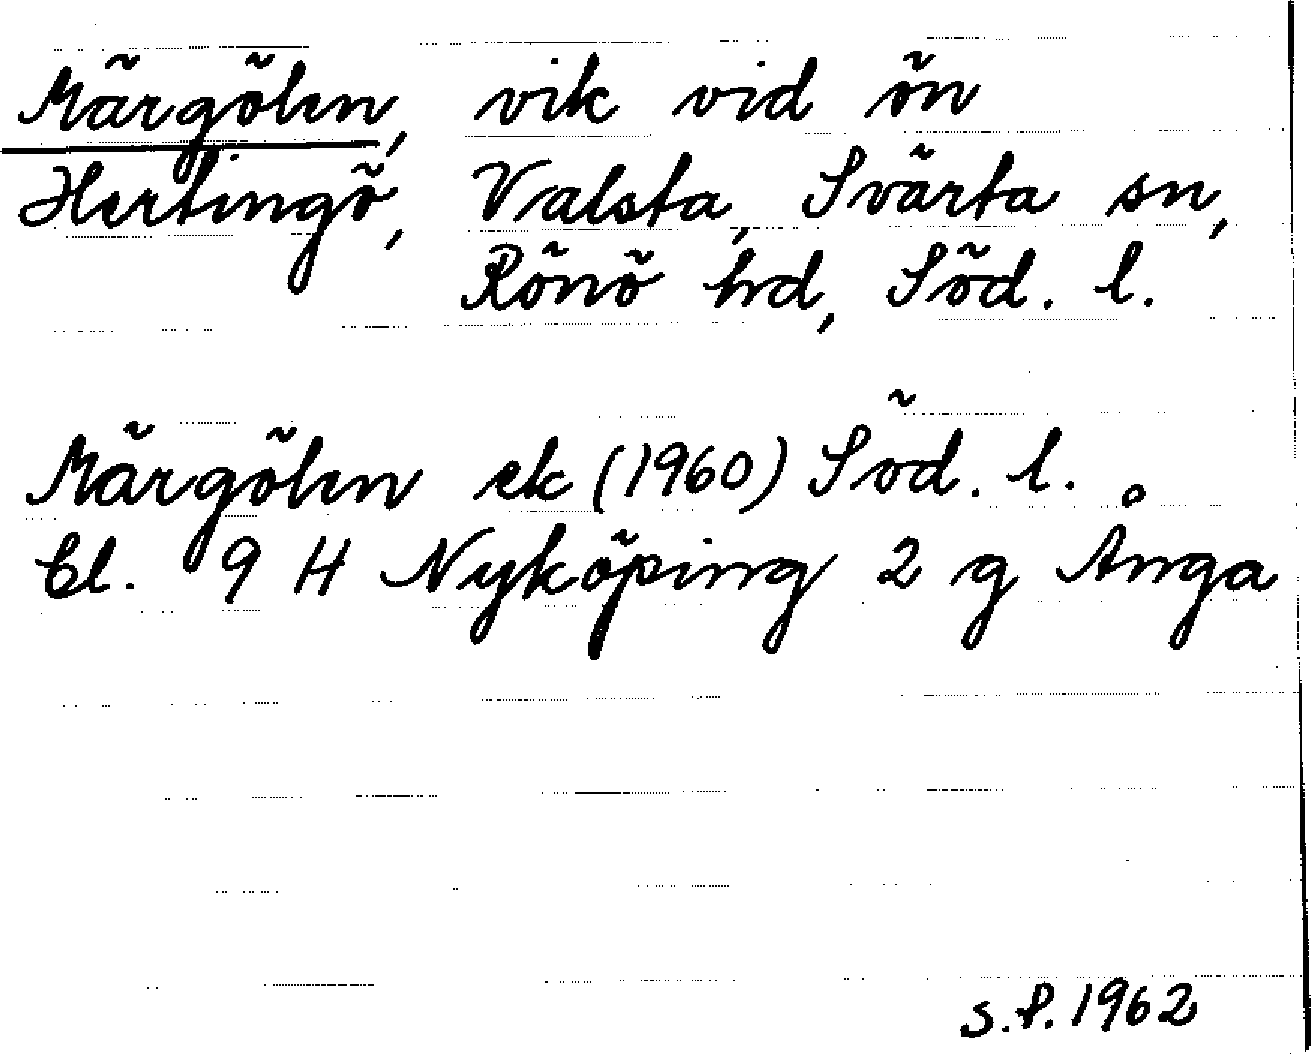 Märgölen, vik vid ön
Hertingö, Valsta, Svärta sn,
Rönö hd, Söd. l.
Märgölen ek (1960) Söd. l.
bl. 9 H Nyköping 2 g Ånga
S.P. 1962